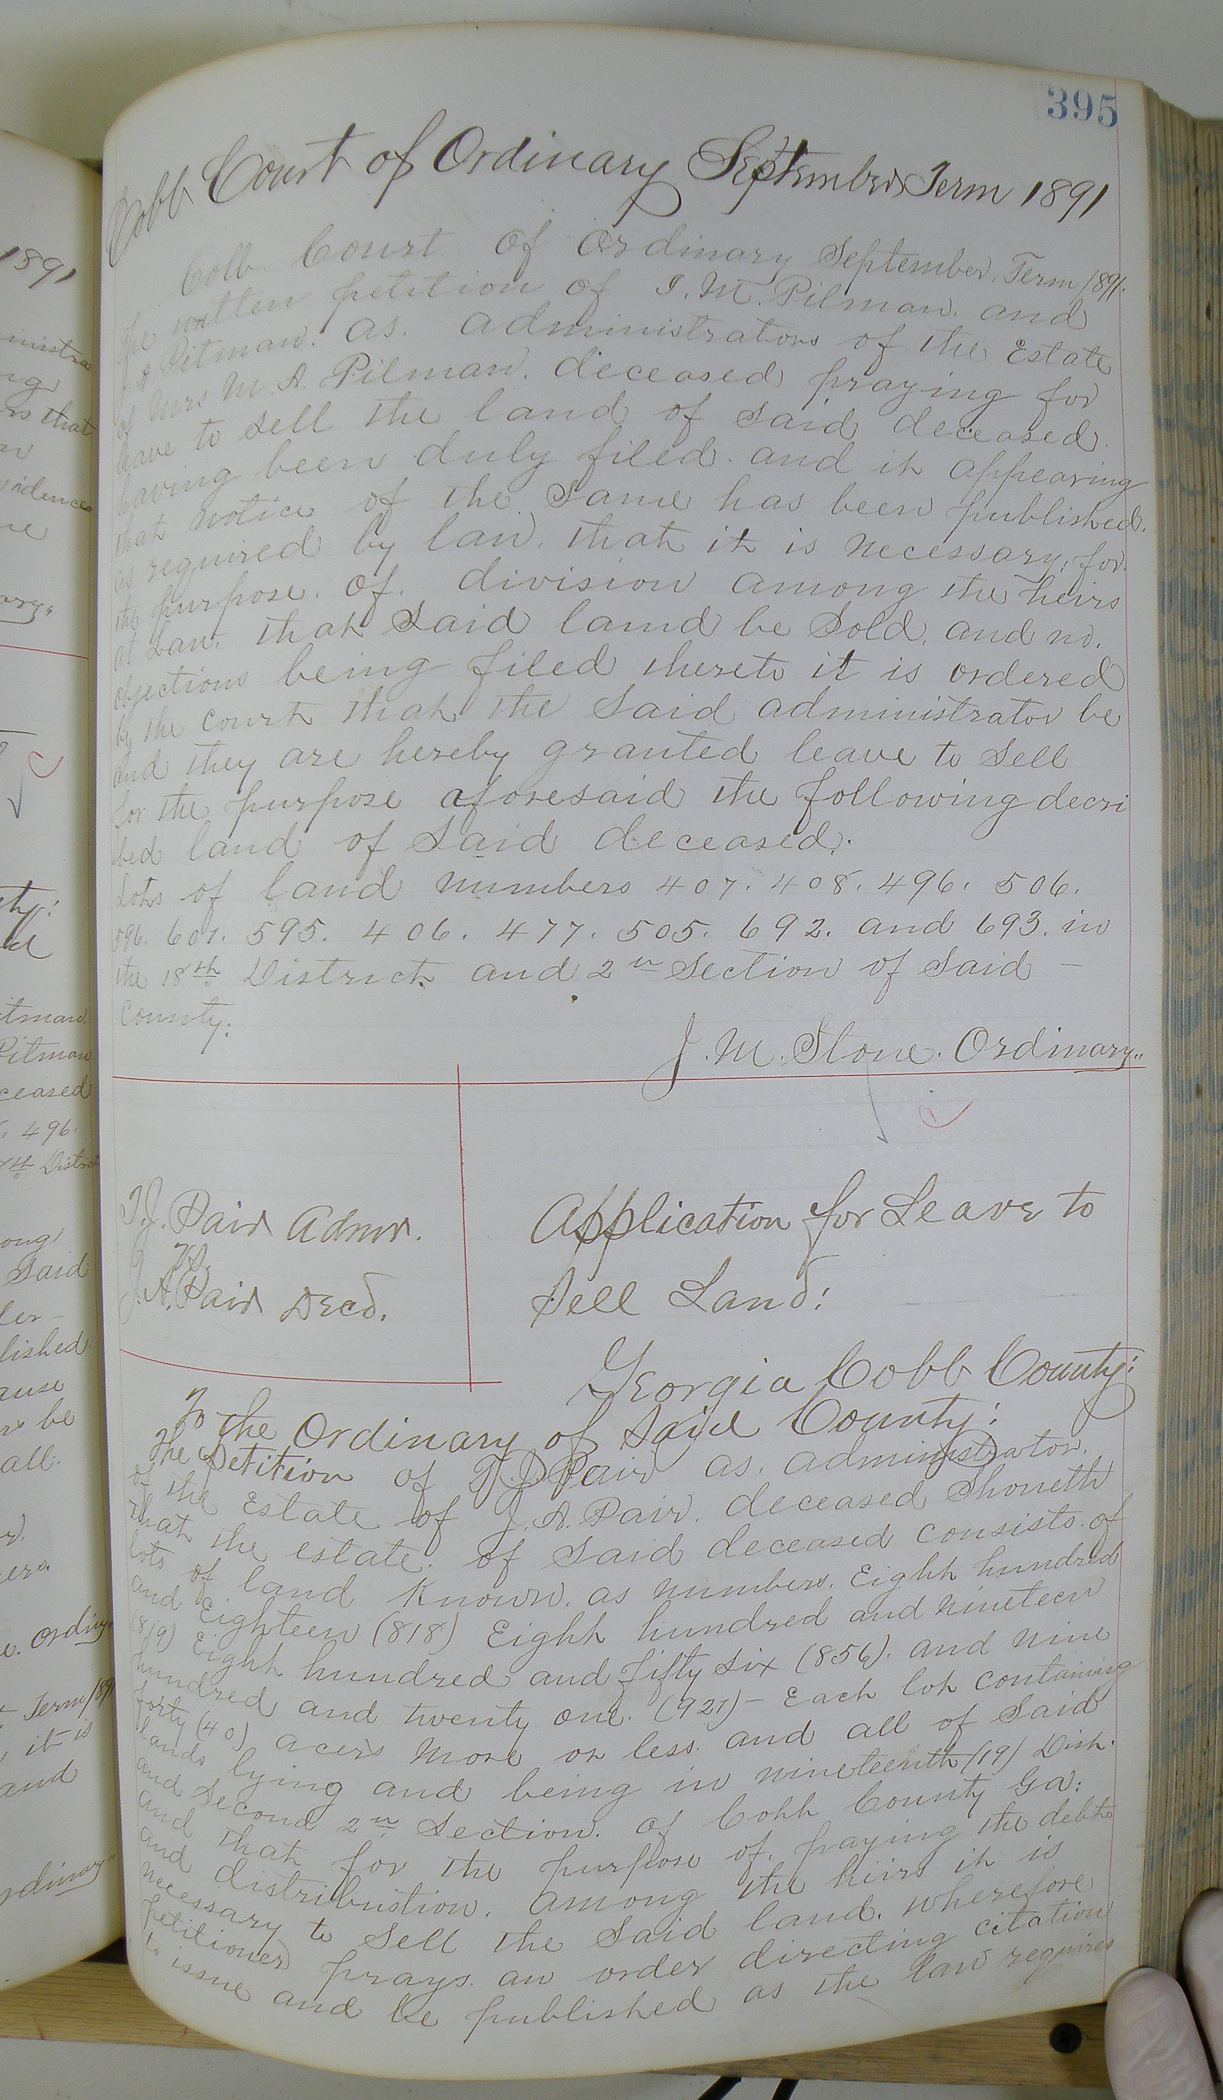 395
Cobb Court of Ordinary September Term 1891
Cobb Court of Ordinary September Term 1891.
The written petition of I. M. Pitman and
Pitman. as. administrators of the Estate
of Mrs M. A. Pitman. deceased praying for
leave to sell the land of said deceased.
having been duly filed. and it appearing
that notice of the same has been published.
as required by law. that it is necessary. for
the purpose. of. division among the heirs
at Law. that said land be sold. and no.
objections being filed thereto it is ordered
by the court that the said administrator be
and they are hereby granted leave to sell
for the purpose aforesaid the following decri
bed land of said deceased.
lots of land numbers 407. 408. 496. 506.
596. 601. 595. 406. 477. 505. 692. and 693. in
the 18th District and 2nd Section of said –
County.
J. M. Stone. Ordinary..
T. J. Pair Admr.
vs.
J. A. Pair Decd.
Application for Leave to
Sell Land:
Georgia Cobb County:
To the Ordinary of Said County:
The Petition of T. J. Pair as. administrator.
of the Estate of J. A. Pair. deceased Shoneth
that the estate. of said deceased consists of
lots of land known. as numbers. Eight hundred
and Eighteen (818) Eight hundred and nineteen
(819) Eight hundred and fifty six (856). and nine
hundred and twenty one. (921) – Each lot containing
forty (40) acers more or less. and all of said
lands lying and being in nineteenth (19) Dist.
and second 2nd Section. of Cobb County Ga:
and that for the purpose of. paying the debts
and distribustion. among the heirs it is
necessary to sell the said land. wherefore
petitioner prays. an order directing citation
to issue and be published as the law requires